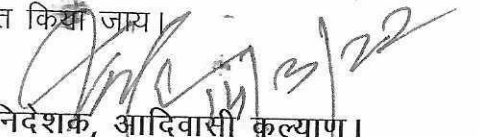 त किया जाय।
14/3/22
निदेशक, आदिवासी कल्याण।